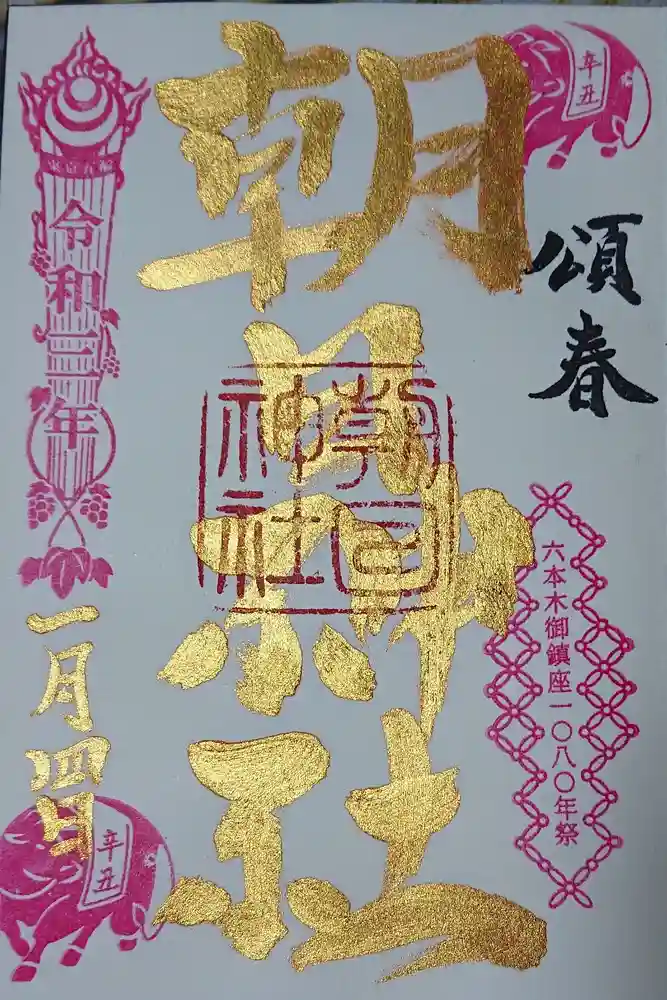 辛丑
頌春
六本木御鎮座一〇八〇年祭
朝日神社
朝日神社
東京六福
令和三年
一月四日
辛丑